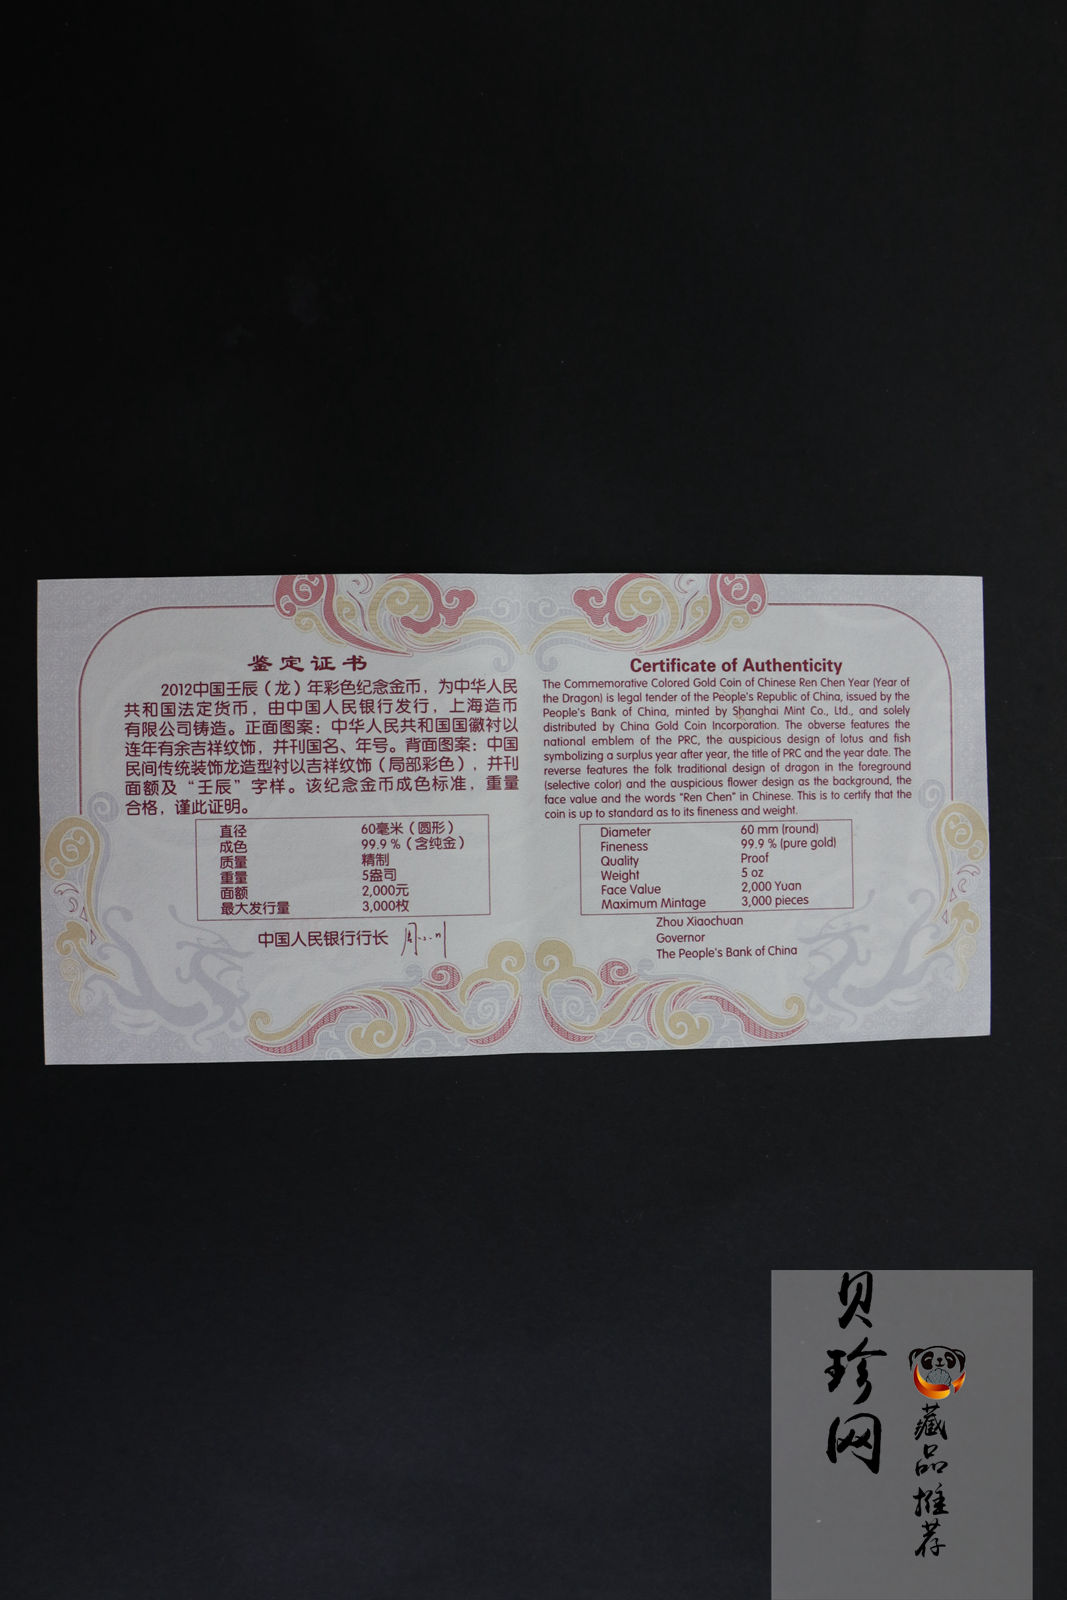 鉴定证书
2012中国壬辰（龙）年彩色纪念金币，为中华人民
共和国法定货币，由中国人民银行发行，上海造币
有限公司铸造。正面图案：中华人民共和国国徽衬以
连年有余吉祥纹饰，并刊国名、年号。背面图案：中国
民间传统装饰龙造型衬以吉祥纹饰（局部彩色），并刊
面额及“壬辰”字样。该纪念金币成色标准，重量
合格，谨此证明。
直径 60毫米（圆形）
成色 99.9％（含纯金）
质量 精制
重量 5盎司
面额 2,000元
最大发行量 3,000枚
中国人民银行行长
Certificate of Authenticity
The Commemorative Colored Gold Coin of Chinese Ren Chen Year (Year of
the Dragon) is legal tender of the People's Republic of China, issued by the
People's Bank of China, minted by Shanghai Mint Co., Ltd., and solely
distributed by China Gold Coin Incorporation. The obverse features the
national emblem of the PRC, the auspicious design of lotus and fish
symbolizing a surplus year after year, the title of PRC and the year date. The
reverse features the folk traditional design of dragon in the foreground
(selective color) and the auspicious flower design as the background, the
face value and the words “Ren Chen” in Chinese. This is to certify that the
coin is up to standard as to its fineness and weight.
Diameter 60 mm (round)
Fineness 99.9 % (pure gold)
Quality Proof
Weight 5 oz
Face Value 2,000 Yuan
Maximum Mintage 3,000 pieces
Zhou Xiaochuan
Governor
The People's Bank of China
贝珍网
藏品推荐